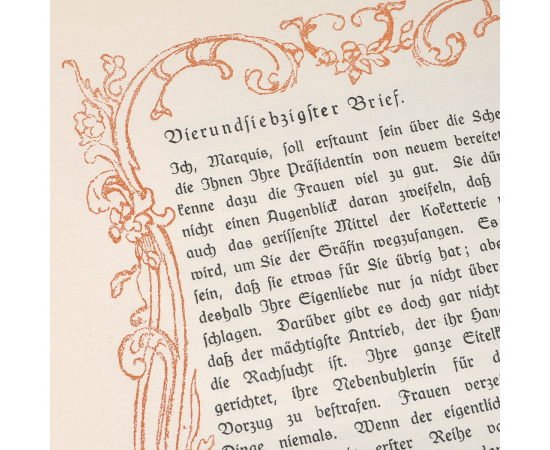 Vierundsiebzigster Brief.
Ich, Marquis, soll erstaunt sein über die Sche
die Ihnen Ihre Präsidentin von neuem bereitet
kenne dazu die Frauen viel zu gut. Sie dür
nicht einen Augenblick daran zweifeln, daß
auch das gerissenste Mittel der Koketterie
wird, um Sie der Gräfin wegzufangen. Es
sein, daß sie etwas für Sie übrig hat; abe
deshalb Ihre Eigenliebe nur ja nicht über
schlagen. Darüber gibt es doch gar nicht
daß der mächtigste Antrieb, der ihr Han
die Rachsucht ist. Ihre ganze Eitelk
gerichtet, ihre Nebenbuhlerin für d
Vorzug zu bestrafen. Frauen verze
Dinge niemals. Wenn der eigentlich
erster Reihe vo